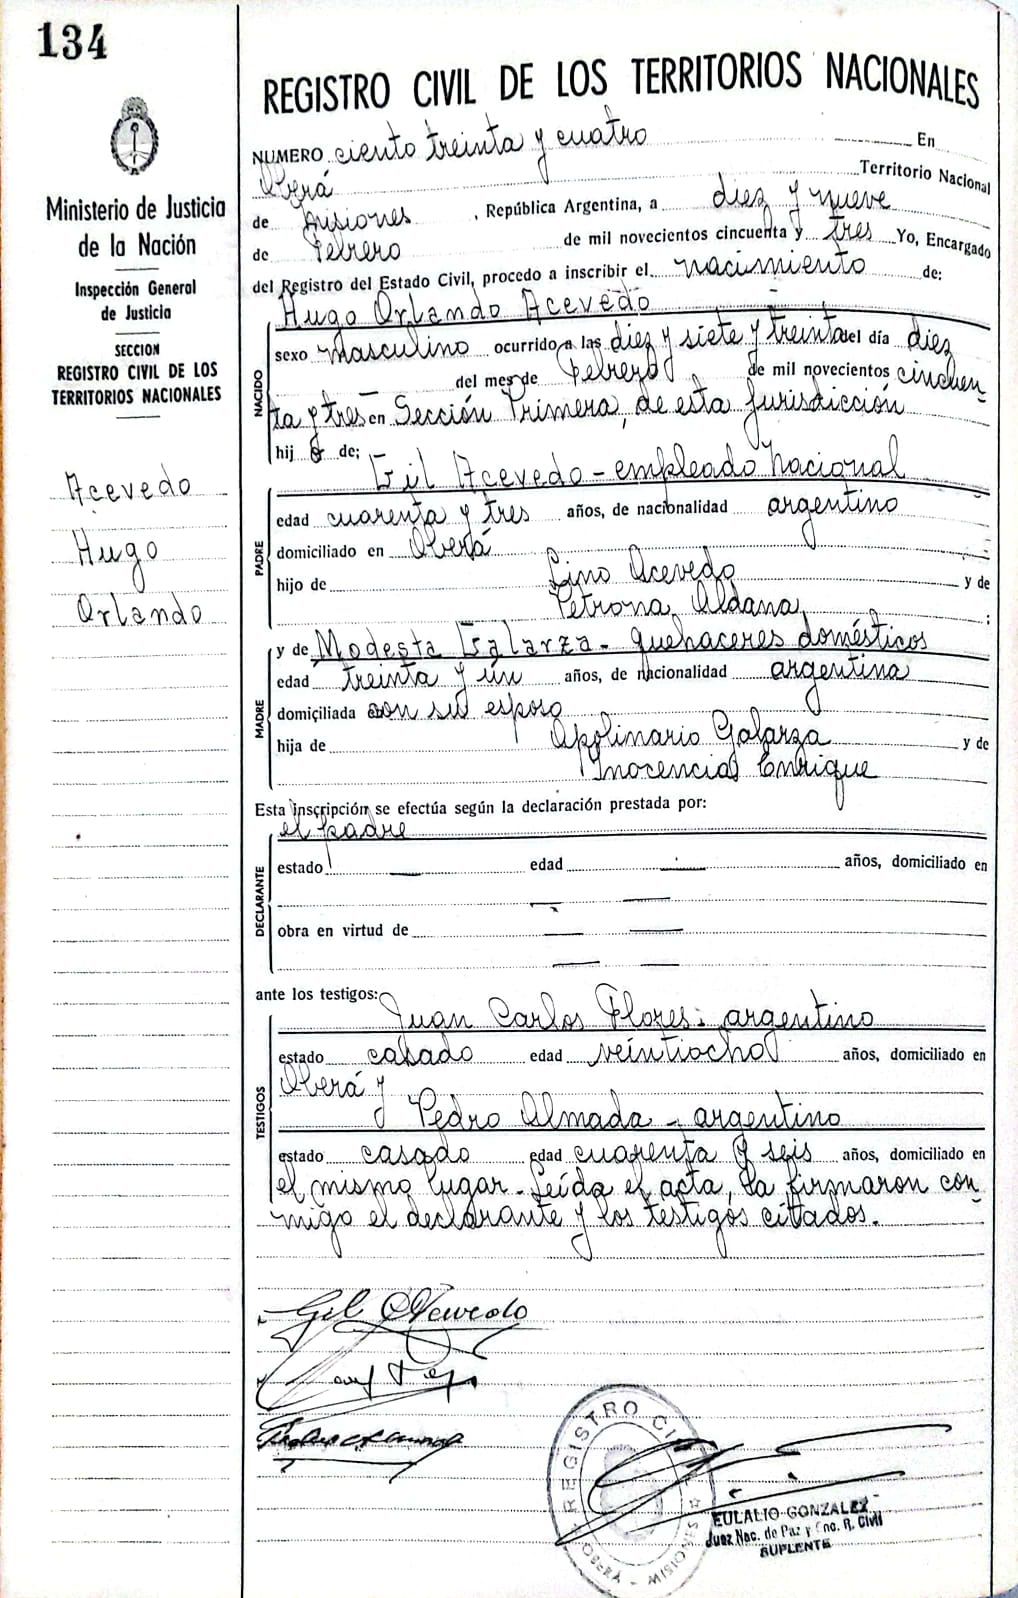 134
REGISTRO CIVIL DE LOS TERRITORIOS NACIONALES
Ministerio de Justicia
de la Nación
Inspección General
de Justicia
SECCION
REGISTRO CIVIL DE LOS
TERRITORIOS NACIONALES
Acevedo
Hugo
Orlando
NUMERO ciento treinta y cuatro En
Oberá Territorio Nacional
de Misiones, República Argentina, a diez y nueve
de Febrero de mil novecientos cincuenta y tres Yo, Encargado
del Registro del Estado Civil, procedo a inscribir el nacimiento de:
Hugo Orlando Acevedo
NACIDO
sexo masculino ocurrido a las diez y siete y treinta del día diez
del mes de Febrero de mil novecientos cincuen-
ta y tres en Sección Primera, de esta jurisdicción
hijo de;
Gil Acevedo - empleado nacional
PADRE
edad cuarenta y tres años, de nacionalidad argentino
domiciliado en Oberá
hijo de Lino Acevedo y de
Petrona Aldana ;
y de Modesta Galarza - quehaceres domésticos
MADRE
edad treinta y un años, de nacionalidad argentina
domiciliada con su esposo
hija de Apolinario Galarza y de
Inocencia Enrique
Esta inscripción se efectúa según la declaración prestada por:
el padre
DECLARANTE
estado — edad — años, domiciliado en
— —
obra en virtud de — —
— —
ante los testigos:
Juan Carlos Flores: argentino
TESTIGOS
estado casado edad veintiocho años, domiciliado en
Oberá y
Pedro Almada - argentino
estado casado edad cuarenta y seis años, domiciliado en
el mismo lugar. Leída el acta, la firmaron con-
migo el declarante y los testigos citados.
Gil Acevedo
REGISTRO CIVIL
MISIONES
EULALIO GONZALEZ
Juez Nac. de Paz y Enc. R. Civil
SUPLENTE